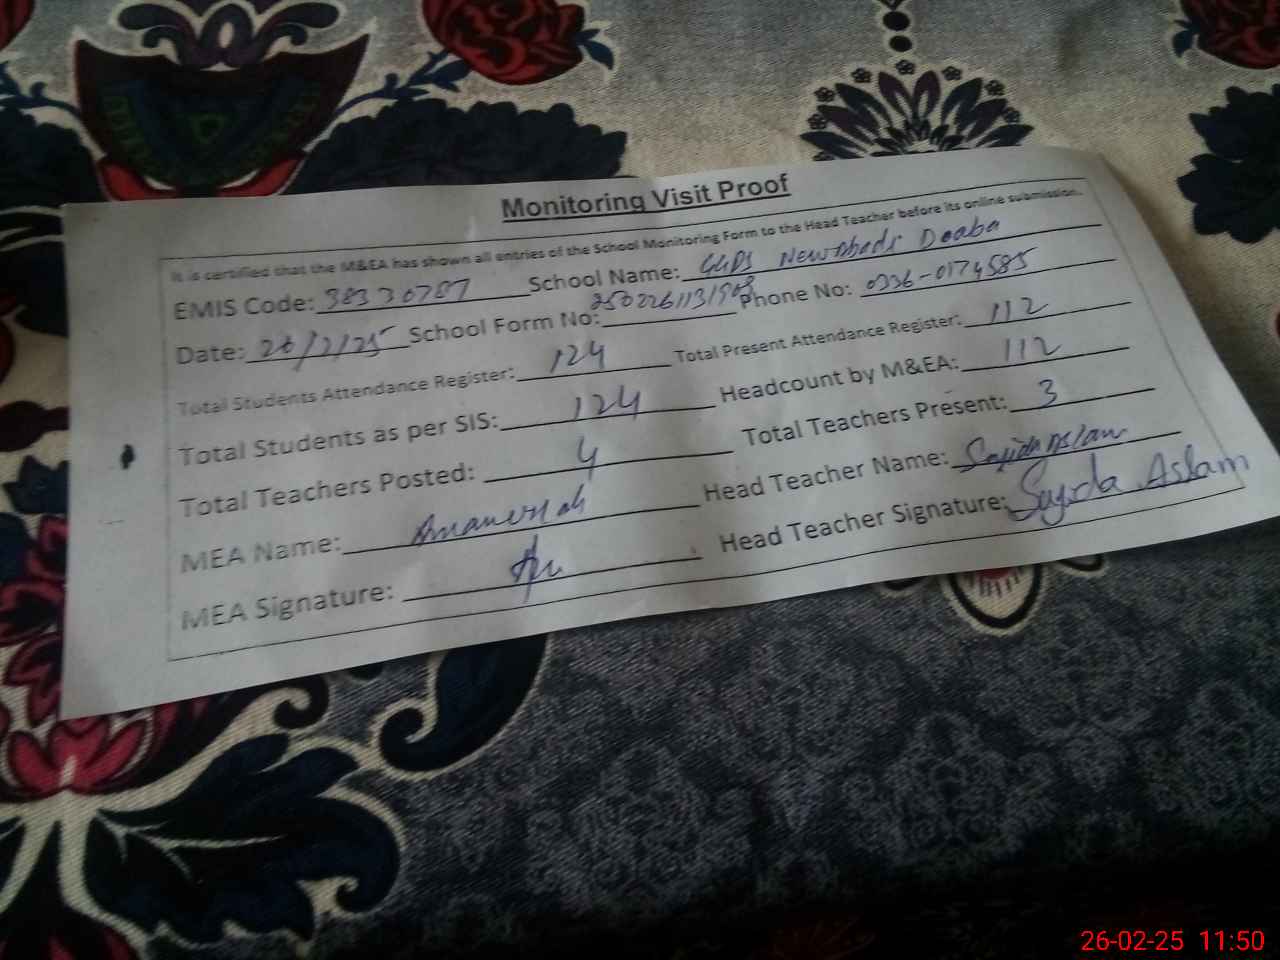 Monitoring Visit Proof
It is certified that the M&EA has shown all entries of the School Monitoring Form to the Head Teacher before its online submission.
EMIS Code: 38330787 School Name: GGPS Doaba
Date: 26/2/25 School Form No: Phone No: 0336-0174585
Total Students Attendance Register: 124 Total Present Attendance Register: 112
Total Students as per SIS: 124 Headcount by M&EA: 112
Total Teachers Posted: 4 Total Teachers Present: 3
MEA Name: Head Teacher Name: Sajida Aslam
MEA Signature: Head Teacher Signature: Sajida Aslam
26-02-25 11:50